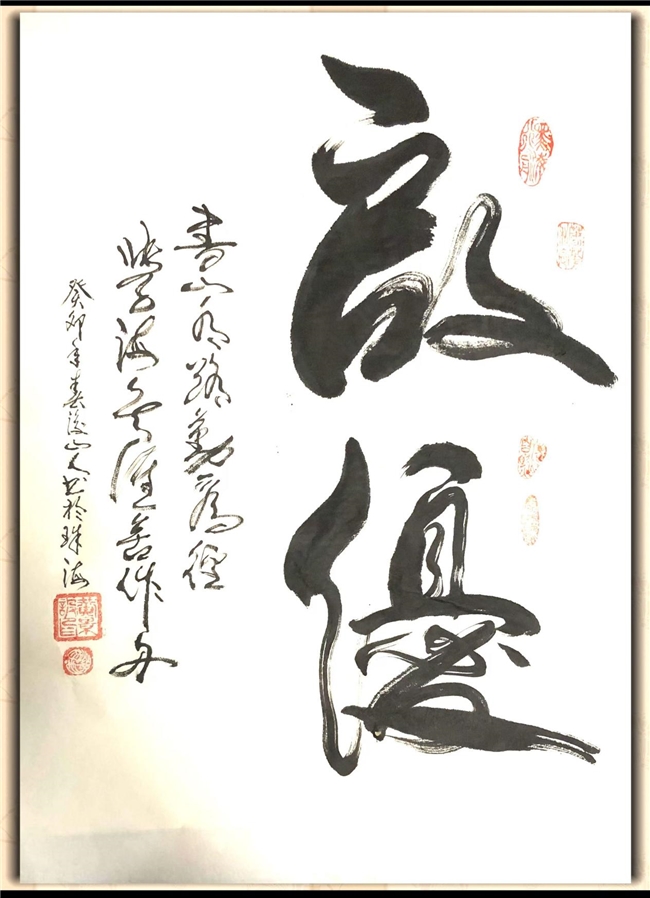 啟優
書山有路勤為徑
學海無涯苦作舟
癸卯年春山人书於珠海